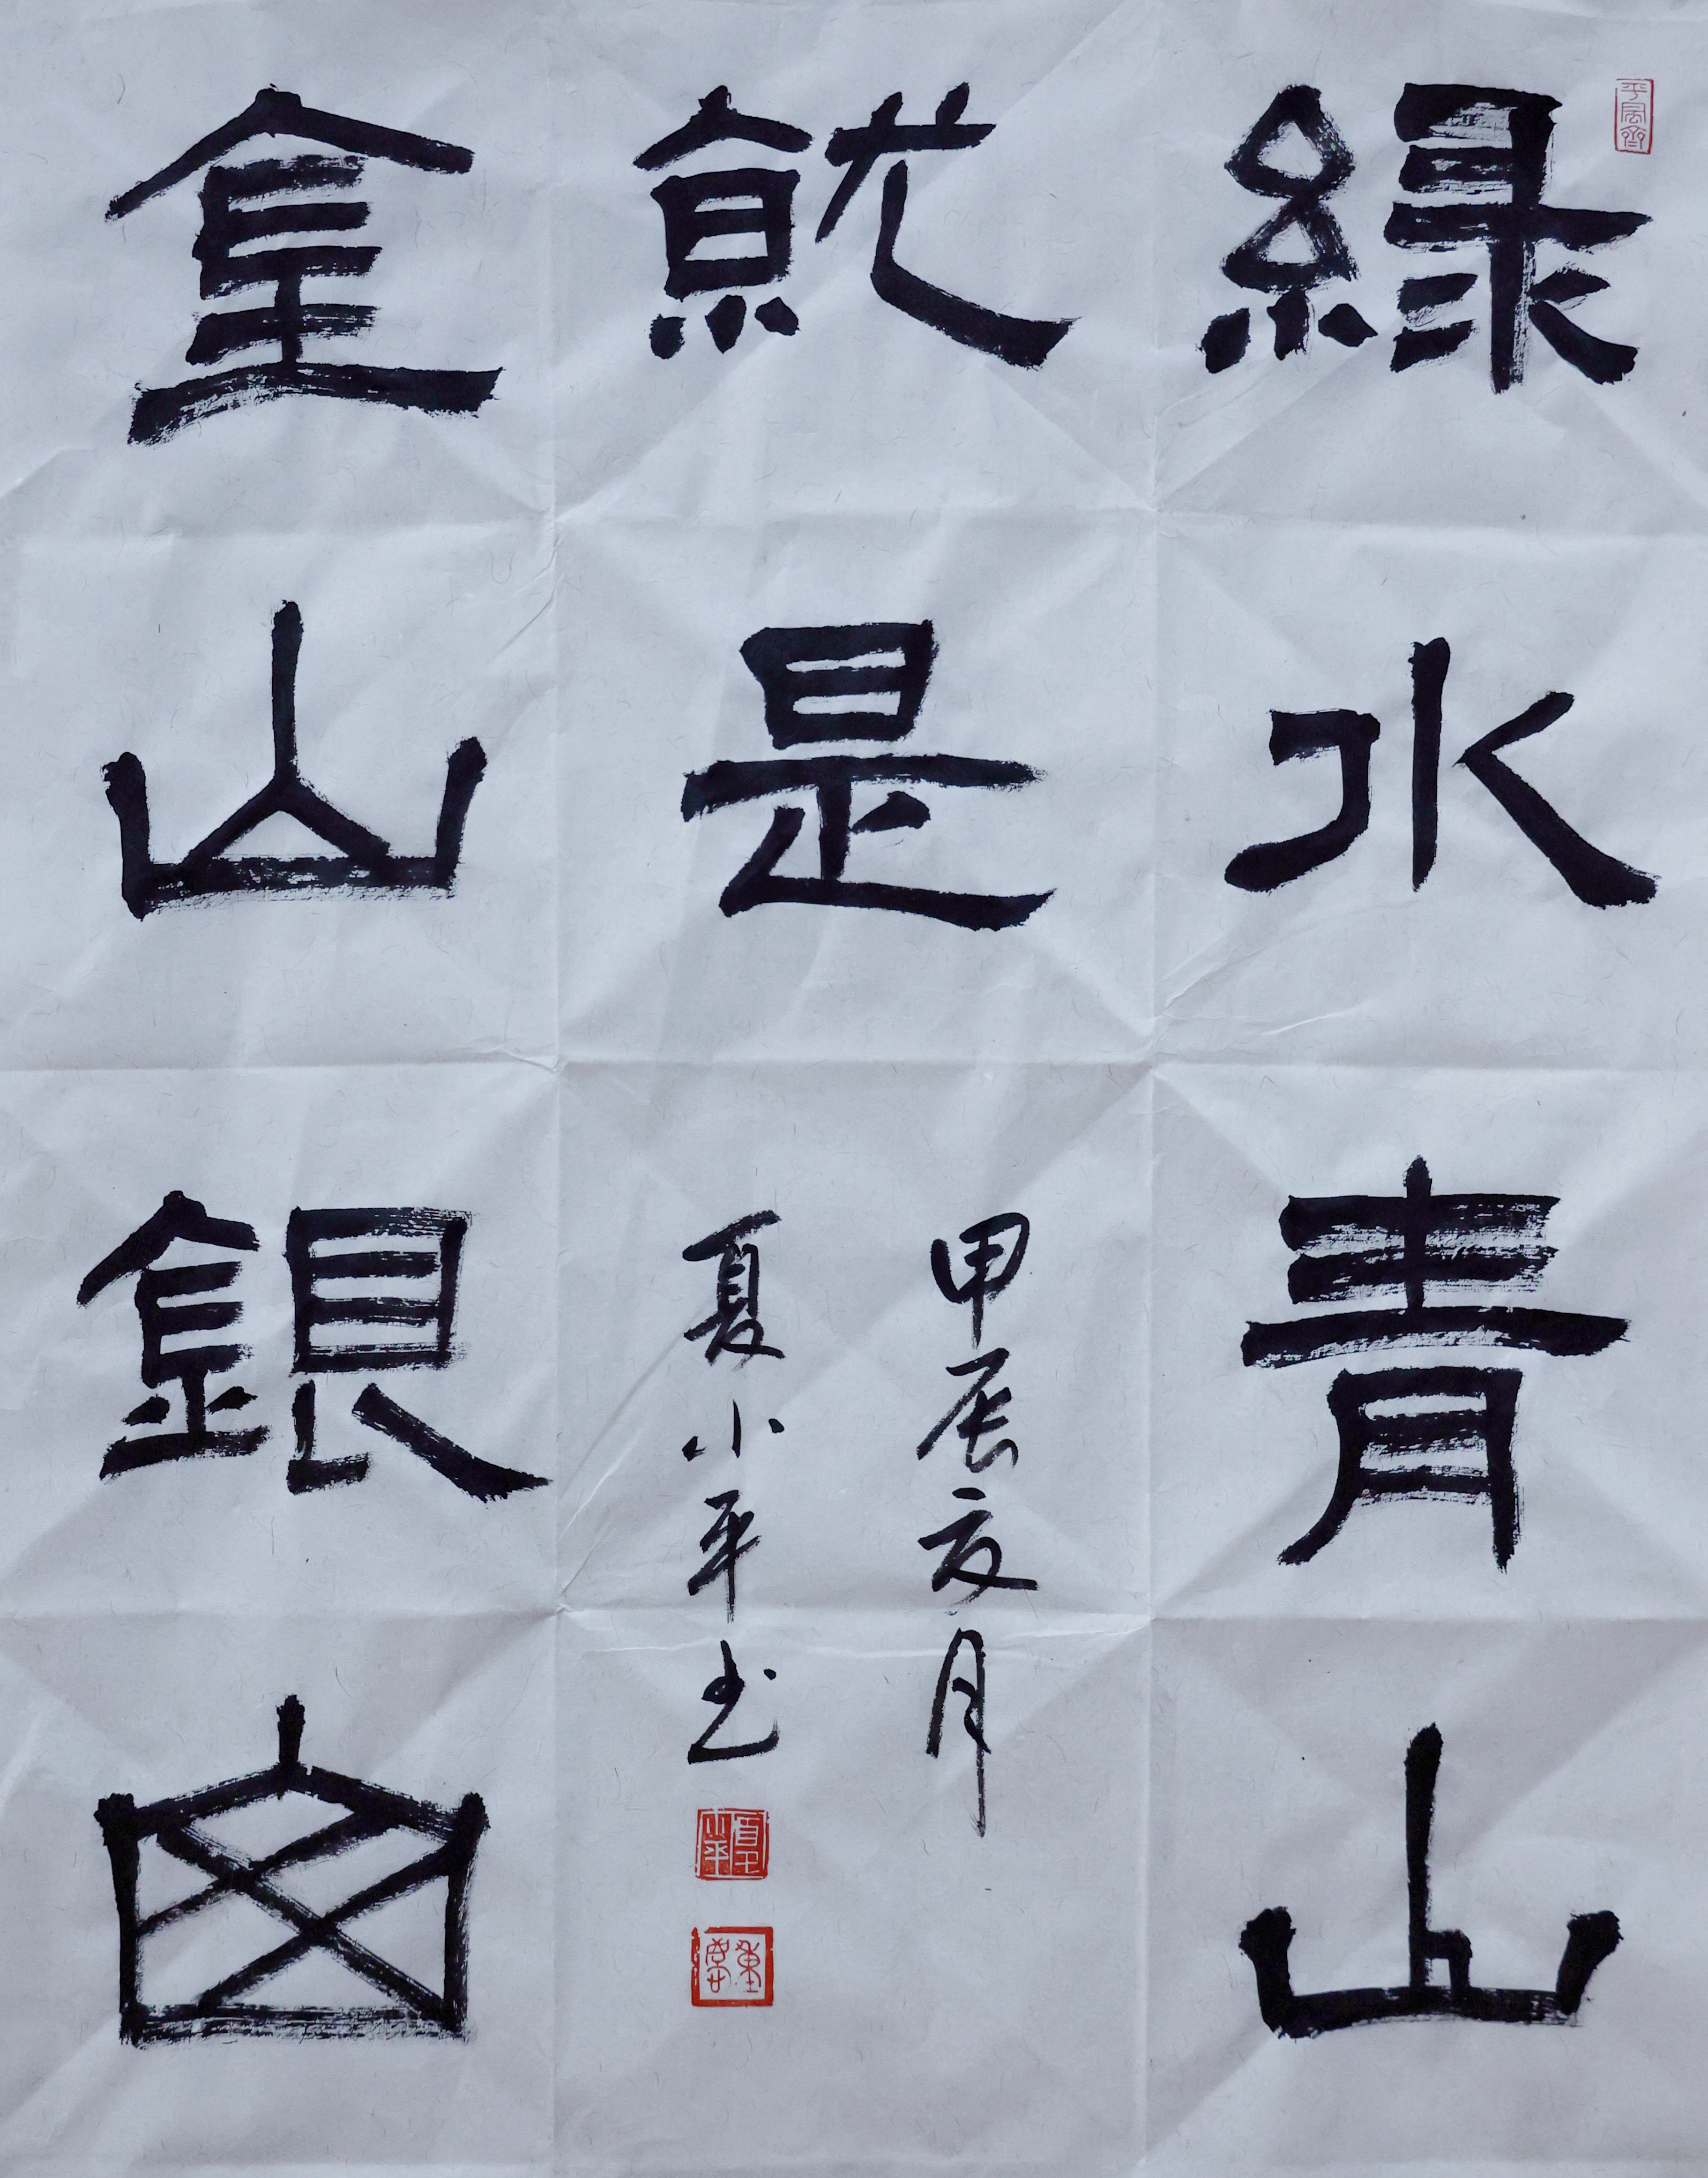 綠水青山
就是
金山銀山
甲辰亥月
夏小平书